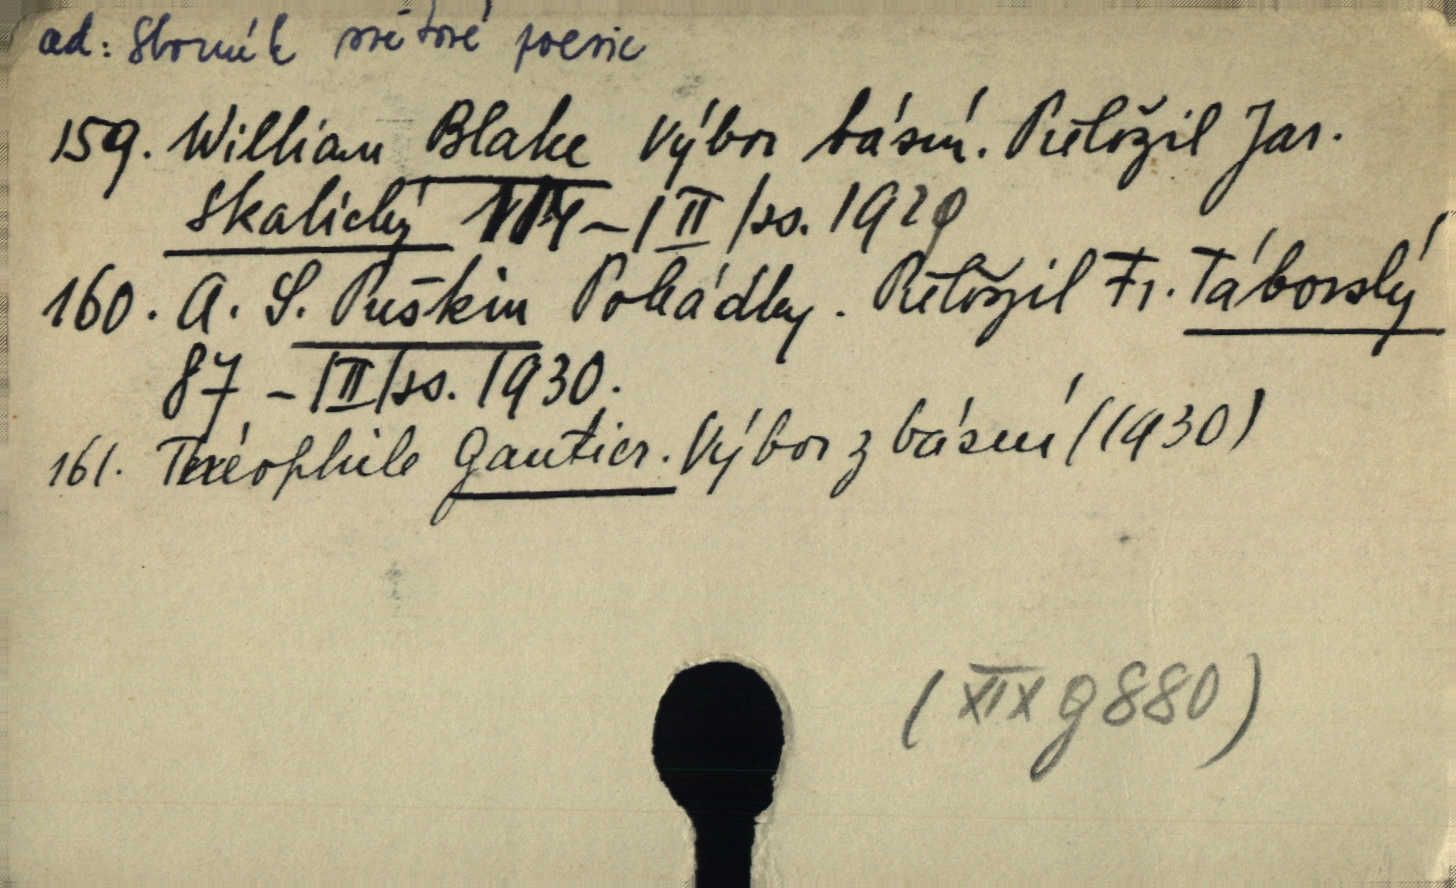 ad: Sborník světové poesie
159. William Blake Výbor básní. Přeložil Jar.
Skalický – /II/ ss. 1929
160. A. S. Puškin Pohádky. Přeložil Fr. Táborský
87 – /II/ ss. 1930.
161. Théophile Gautier. Výbor z básní (1930)
(XIX g 880)